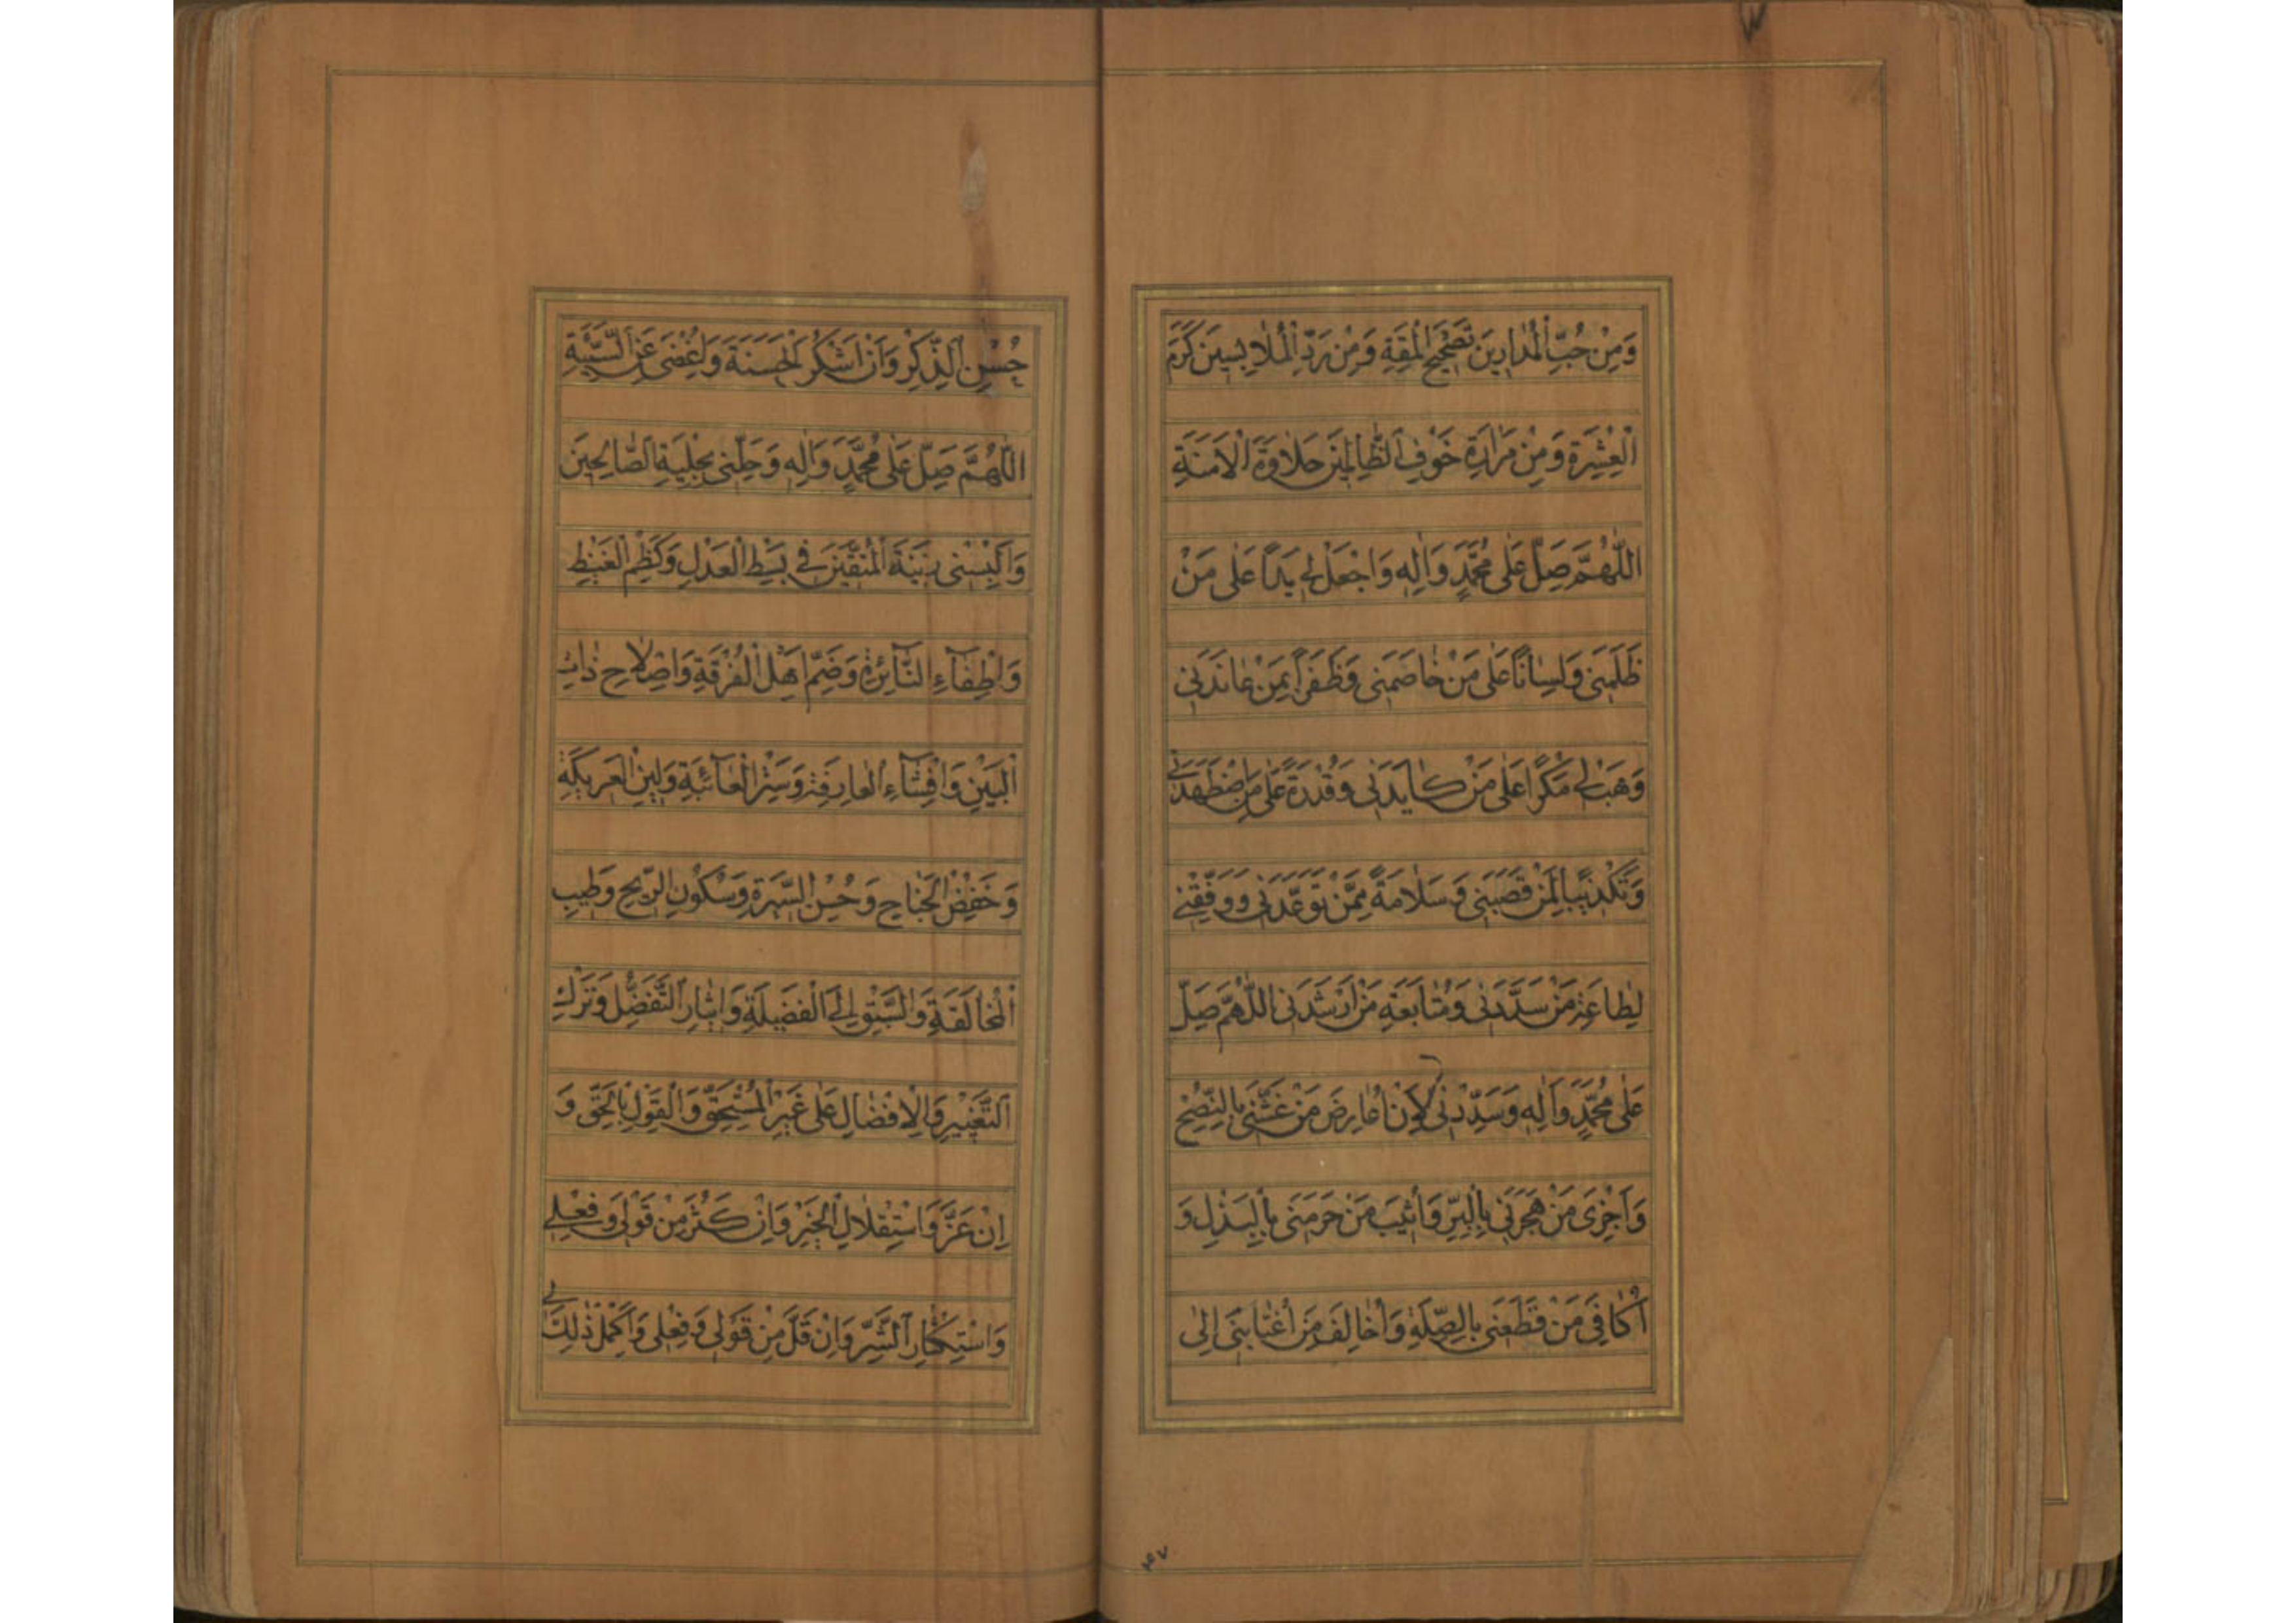 وَمِنْ حُبِّ الْمُدارينَ تَصْحيحَ الْمِقَةِ وَمِنْ رَدِّ الْمُلابِسينَ كَرَمَ
الْعِشْرَةِ وَمِنْ مَرارَةِ خَوْفِ الظّالِمينَ حَلاوَةَ الْاَمَنَةِ
اَللّٰهُمَّ صَلِّ عَلى مُحَمَّدٍ وَاٰلِه وَاجْعَلْ لي يَدًا عَلى مَنْ
ظَلَمَنى وَلِسانًا عَلى مَنْ خاصَمَنى وَظَفَرًا بِمَنْ عانَدَنى
وَهَبْ لي مَكْرًا عَلى مَنْ كايَدَنى وَقُدْرَةً عَلى مَنِ اضْطَهَدَنى
وَتَكْذيبًا لِمَنْ قَصَبَنى وَسَلامَةً مِمَّنْ تَوَعَّدَنى وَوَفِّقْنى
لِطاعَةِ مَنْ سَدَّدَنى وَمُتابَعَةِ مَنْ اَرْشَدَنى اَللّٰهُمَّ صَلِّ
عَلى مُحَمَّدٍ وَاٰلِه وَسَدِّدْنى لِاَنْ اُعارِضَ مَنْ غَشَّنى بِالنُّصْحِ
وَاَجْزِىَ مَنْ هَجَرَنى بِالْبِرِّ وَاُثيبَ مَنْ حَرَمَنى بِالْبَذْلِ وَ
اُكافِىَ مَنْ قَطَعَنى بِالصِّلَةِ وَاُخالِفَ مَنِ اغْتابَنى اِلى
۴۷
حُسْنِ الذِّكْرِ وَاَنْ اَشْكُرَ الْحَسَنَةَ وَاُغْضِىَ عَنِ السَّيِّئَةِ
اَللّٰهُمَّ صَلِّ عَلى مُحَمَّدٍ وَاٰلِه وَحَلِّنى بِحِلْيَةِ الصّالِحينَ
وَاَلْبِسْنى زينَةَ الْمُتَّقينَ في بَسْطِ الْعَدْلِ وَكَظْمِ الْغَيْظِ
وَاِطْفآءِ النّآئِرَةِ وَضَمِّ اَهْلِ الْفُرْقَةِ وَاِصْلاحِ ذاتِ
الْبَيْنِ وَاِفْشآءِ الْعارِفَةِ وَسَتْرِ الْعآئِبَةِ وَلينِ الْعَريكَةِ
وَخَفْضِ الْجَناحِ وَحُسْنِ السّيرَةِ وَسُكُونِ الرّيحِ وَطيبِ
الْمُخالَقَةِ وَالسَّبْقِ اِلَى الْفَضيلَةِ وَايثارِ التَّفَضُّلِ وَتَرْكِ
التَّعْييرِ وَالْاِفْضالِ عَلى غَيْرِ الْمُسْتَحِقِّ وَالْقَوْلِ بِالْحَقِّ وَ
اِنْ عَزَّ وَاسْتِقْلالِ الْخَيْرِ وَاِنْ كَثُرَ مِنْ قَوْلى وَفِعْلى
وَاسْتِكْثارِ الشَّرِّ وَاِنْ قَلَّ مِنْ قَوْلى وَفِعْلى وَاَكْمِلْ ذٰلِكَ لي